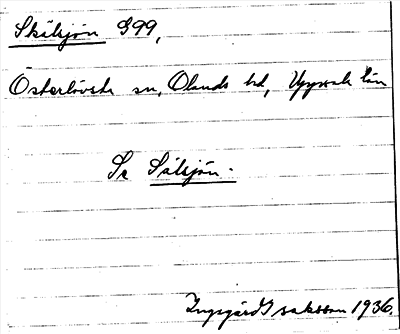 Skälsjön 999,
Österlövsta sn, Olands hd, Uppsala län
Se Sälsjön.
Ingegärd Isaksson 1936.